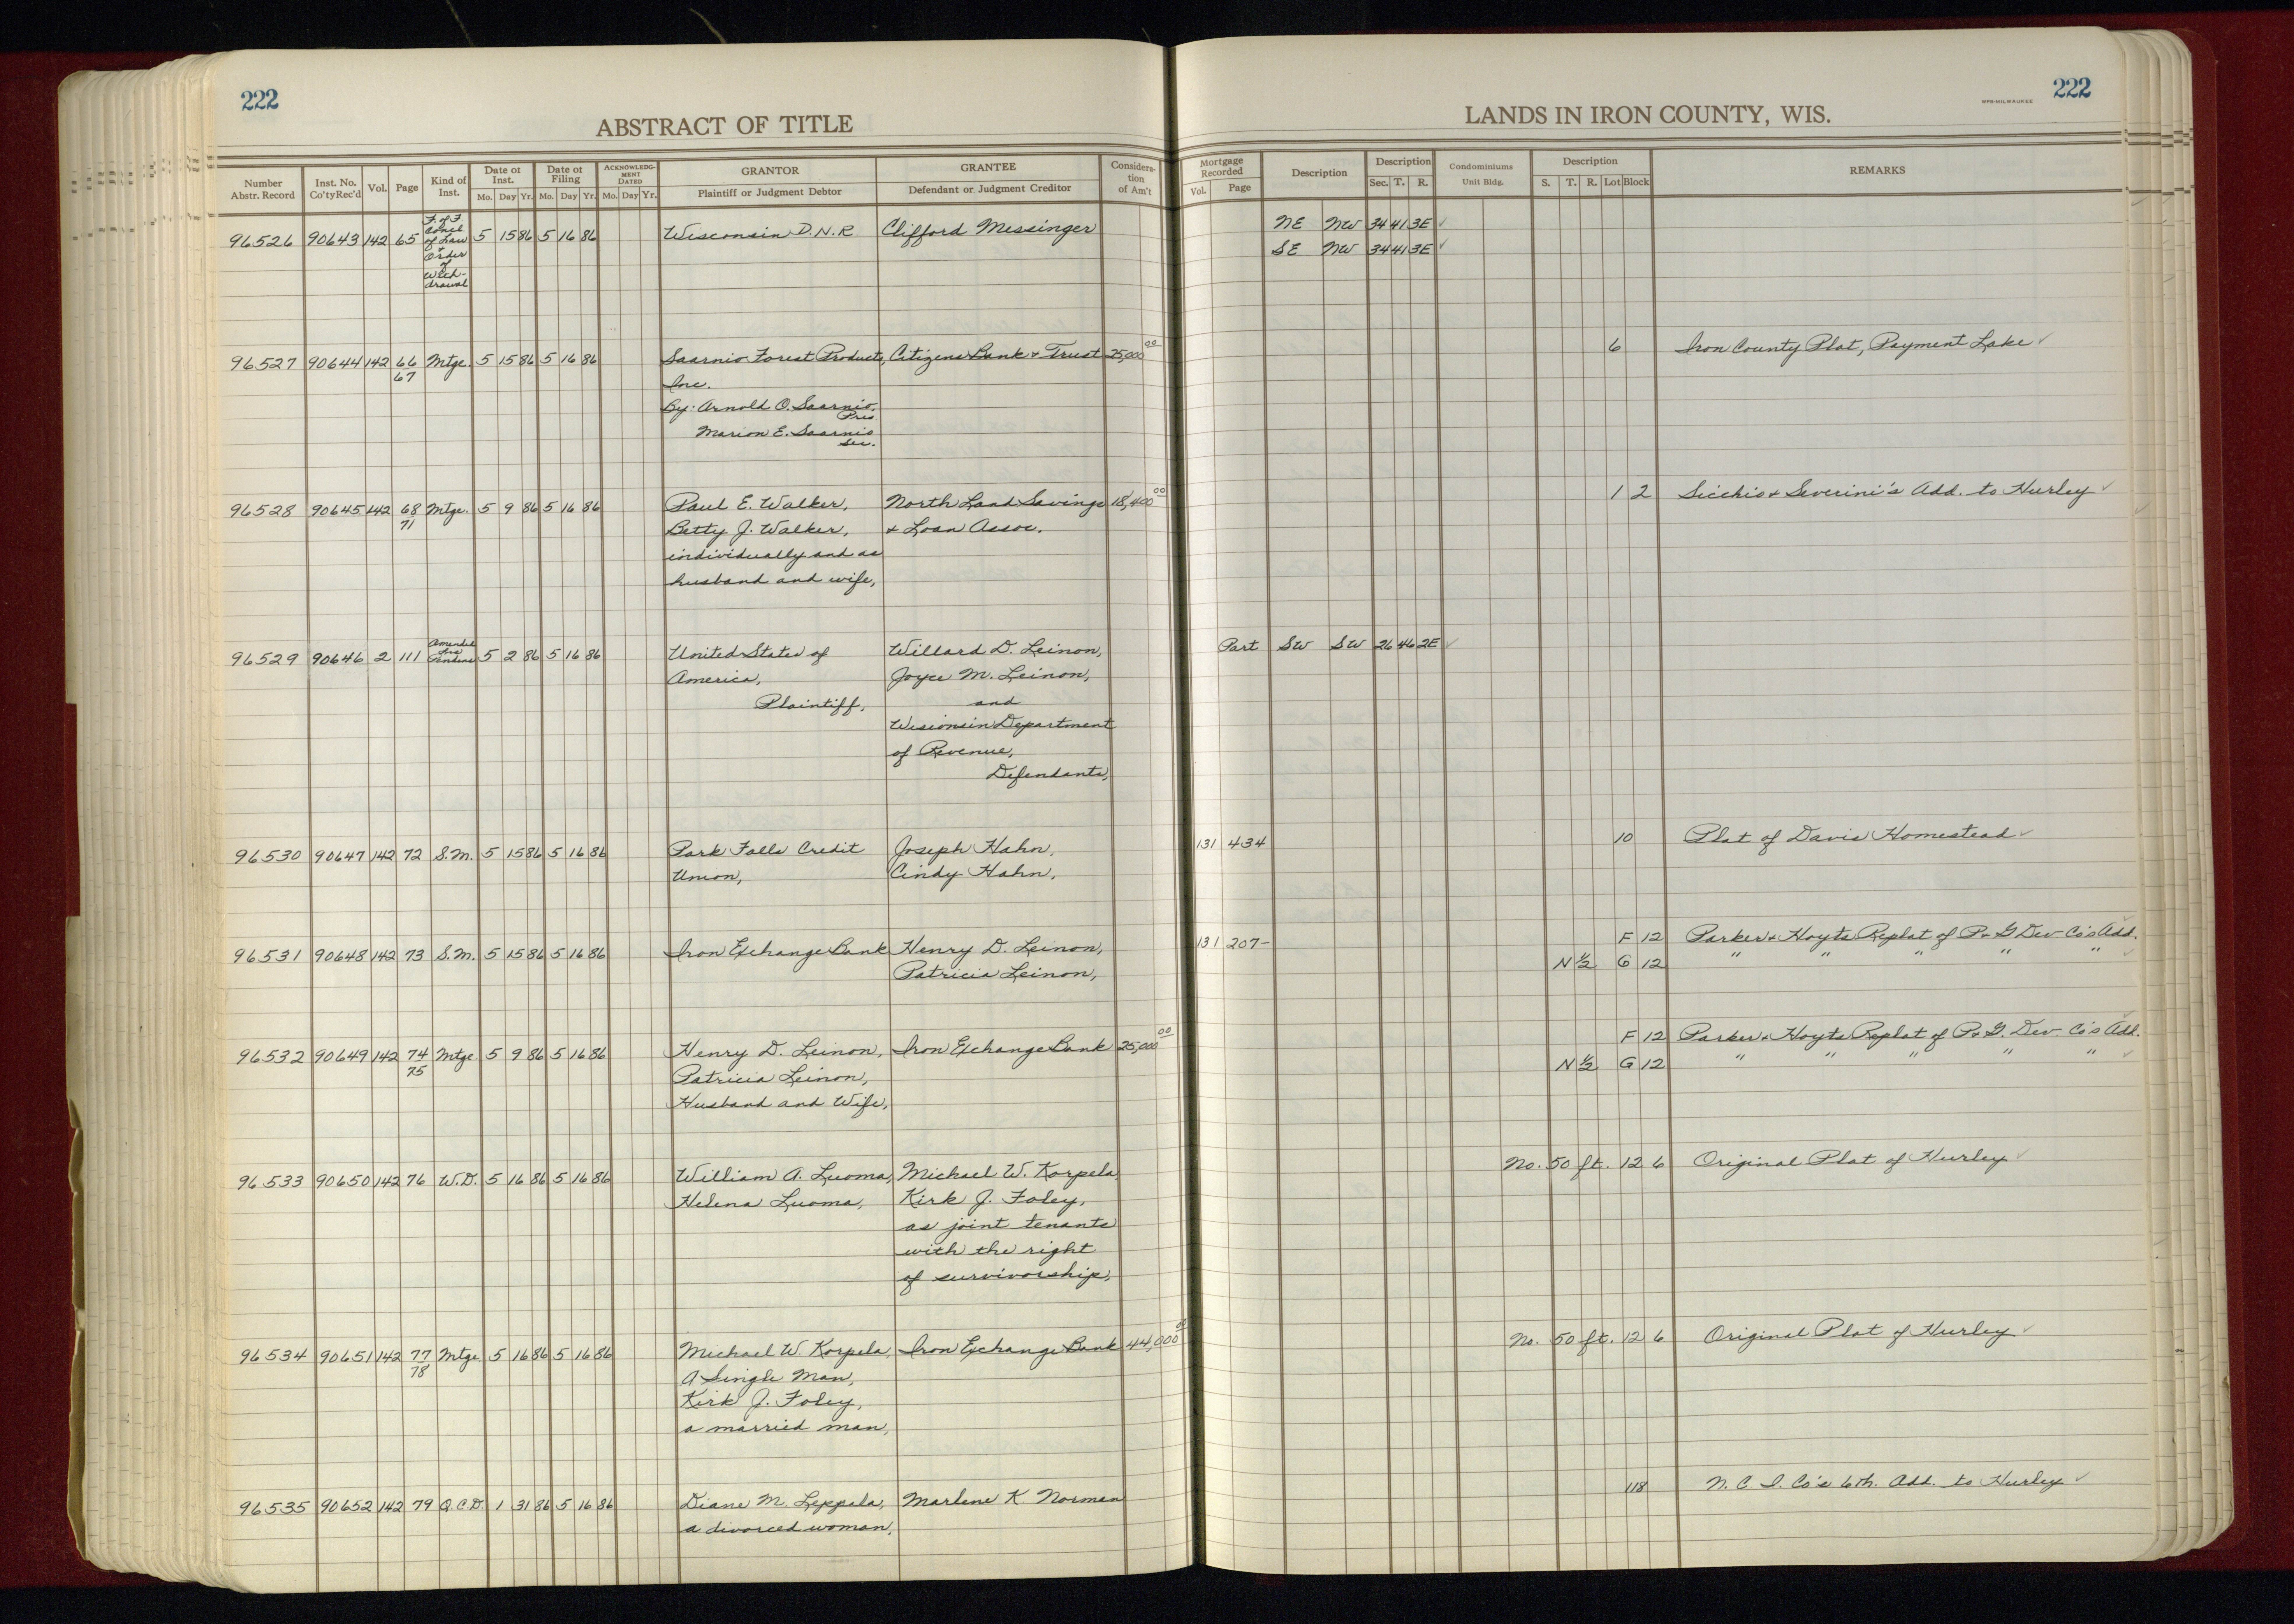 222
222
ABSTRACT OF TITLE
LANDS IN IRON COUNTY, WIS.
WPB-MILWAUKEE
Number Abstr. Record | Inst. No. Co'ty Rec'd | Vol. | Page | Kind of Inst. | Date of Inst. Mo. Day Yr. | Date of Filing Mo. Day Yr. | ACKNOWLEDGMENT DATED Mo. Day Yr. | GRANTOR Plaintiff or Judgment Debtor | GRANTEE Defendant or Judgment Creditor | Consideration of Am't | Mortgage Recorded Vol. Page | Description | Description Sec. T. R. | Condominiums Unit Bldg. | Description S. T. R. Lot Block | REMARKS
96526 90643 142 65 F. of F. Concl of Law + Order of Withdrawal 5 15 86 5 16 86 Wisconsin D.N.R Clifford Messinger NE NW 34 41 3E ✓
SE NW 34 41 3E ✓
96527 90644 142 66 Mtge. 5 15 86 5 16 86 Saarnio Forest Products, Citizens Bank + Trust 25,000 00 6 Iron County Plat, Payment Lake ✓
67 Inc.
By: Arnold O. Saarnio, Pres
Marion E. Saarnio Sec.
96528 90645 142 68 Mtge. 5 9 86 5 16 86 Paul E. Walker, North Land Savings 18,400 00 1 2 Sicchio + Severini's Add. to Hurley ✓
71 Betty J. Walker, + Loan Assoc.
individually and as
husband and wife,
96529 90646 2 111 Amended Lis Pendens 5 2 86 5 16 86 United States of Willard D. Leinon, Part SW SW 26 46 2E ✓
America, Joyce M. Leinon,
Plaintiff, and
Wisionsin Department
of Revenue,
Defendants,
96530 90647 142 72 S.M. 5 15 86 5 16 86 Park Falls Credit Joseph Hahn, 131 434 10 Plat of Davis Homestead ✓
Union, Cindy Hahn,
96531 90648 142 73 S.M. 5 15 86 5 16 86 Iron Exchange Bank Henry D. Leinon, 131 207- F 12 Parker + Hoyts Replat of P+G Dev Co's Add. ✓
Patricia Leinon, N ½ G 12 " " " " " ✓
96532 90649 142 74 Mtge 5 9 86 5 16 86 Henry D. Leinon, Iron Exchange Bank 25,000 00 F 12 Parker + Hoyts Replat of P+G. Dev Co's Add. ✓
75 Patricia Leinon, N ½ G 12 " " " " " ✓
Husband and Wife,
96533 90650 142 76 W.D. 5 16 86 5 16 86 William A. Luoma, Michael W. Korpela, No. 50 ft. 12 6 Original Plat of Hurley ✓
Helena Luoma, Kirk J. Foley,
as joint tenants
with the right
of survivorship,
96534 90651 142 77 Mtge 5 16 86 5 16 86 Michael W. Korpela, Iron Exchange Bank 44,000 00 No. 50 ft. 12 6 Original Plat of Hurley ✓
78 A Single Man,
Kirk J. Foley,
a married man,
96535 90652 142 79 Q.C.D. 1 31 86 5 16 86 Diane M. Leppala, Marlene K. Norman 118 N. C. I. Co's 6th. Add. to Hurley ✓
a divorced woman,